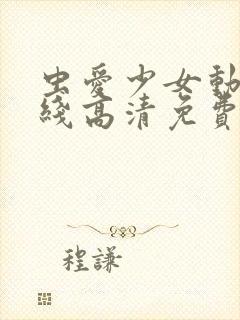 虫愛少女動
綫高清免費
程謙